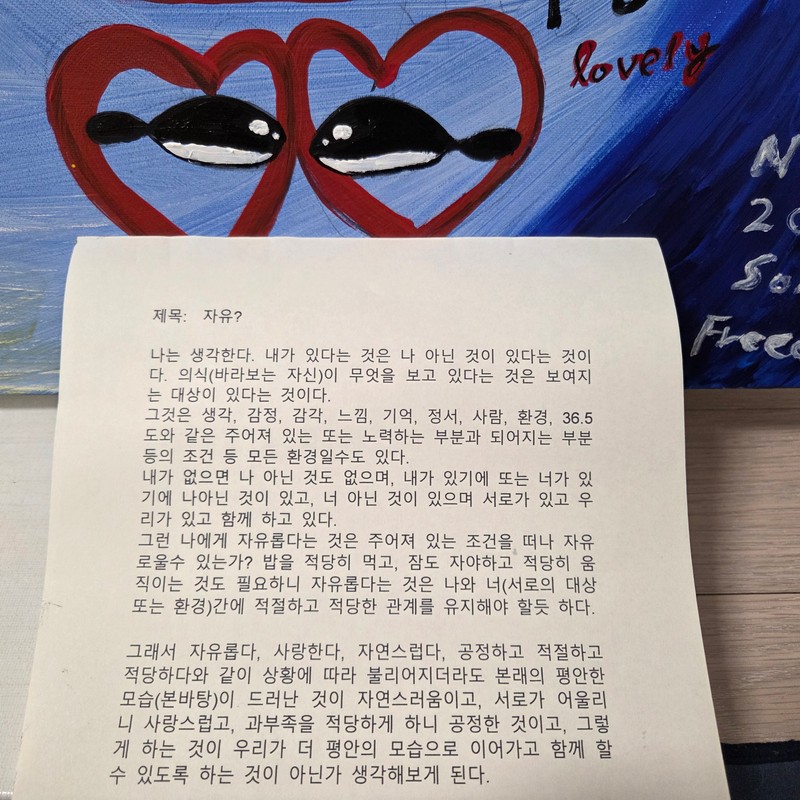 lovely
제목: 자유?
나는 생각한다. 내가 있다는 것은 나 아닌 것이 있다는 것이
다. 의식(바라보는 자신)이 무엇을 보고 있다는 것은 보여지
는 대상이 있다는 것이다.
그것은 생각, 감정, 감각, 느낌, 기억, 정서, 사람, 환경, 36.5
도와 같은 주어져 있는 또는 노력하는 부분과 되어지는 부분
등의 조건 등 모든 환경일수도 있다.
내가 없으면 나 아닌 것도 없으며, 내가 있기에 또는 너가 있
기에 나아닌 것이 있고, 너 아닌 것이 있으며 서로가 있고 우
리가 있고 함께 하고 있다.
그런 나에게 자유롭다는 것은 주어져 있는 조건을 떠나 자유
로울수 있는가? 밥을 적당히 먹고, 잠도 자야하고 적당히 움
직이는 것도 필요하니 자유롭다는 것은 나와 너(서로의 대상
또는 환경)간에 적절하고 적당한 관계를 유지해야 할듯 하다.
그래서 자유롭다, 사랑한다, 자연스럽다, 공정하고 적절하고
적당하다와 같이 상황에 따라 불리어지더라도 본래의 평안한
모습(본바탕)이 드러난 것이 자연스러움이고, 서로가 어울리
니 사랑스럽고, 과부족을 적당하게 하니 공정한 것이고, 그렇
게 하는 것이 우리가 더 평안의 모습으로 이어가고 함께 할
수 있도록 하는 것이 아닌가 생각해보게 된다.